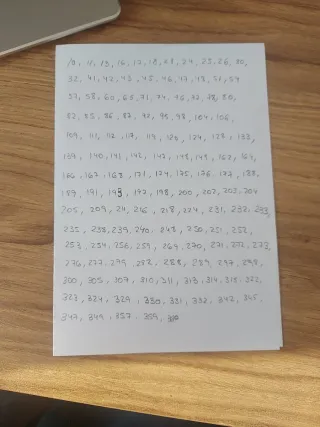 10, 11, 13, 16, 17, 18, 24, 25, 26, 30,
32, 41, 42, 43, 45, 46, 47, 48, 54
57, 58, 60, 65, 71, 74, 76, 77, 78, 80,
82, 85, 86, 87, 92, 95, 98, 104, 106,
109, 111, 112, 117, 119, 120, 124, 128, 133,
139, 140, 141, 142, 147, 148, 149, 162, 164,
166, 167, 168, 171, 174, 175, 176, 177, 188,
189, 191, 193, 197, 198, 200, 202, 203, 204
205, 209, 216, 218, 224, 231, 232, 233,
235, 238, 239, 240, 248, 250, 251, 252,
253, 254, 256, 259, 269, 270, 271, 272, 273,
276, 277, 285, 288, 289, 297, 298,
300, 305, 307, 310, 311, 313, 314, 318, 322,
323, 324, 329, 330, 331, 332, 342, 345,
347, 349, 357, 359,